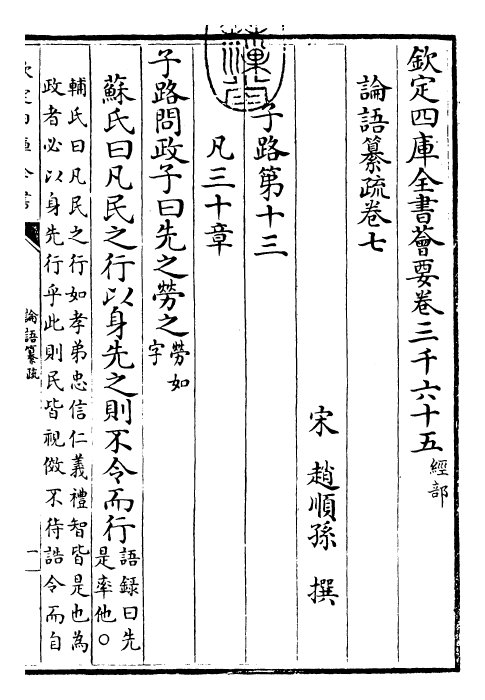 欽定四庫全書薈要卷三千六十五 經部
論語纂疏卷七
宋 趙順孫 撰
子路第十三
凡三十章
子路問政子曰先之勞之 勞如字
蘇氏曰凡民之行以身先之則不令而行 語録曰先是率他○
輔氏曰凡民之行如孝弟忠信仁義禮智皆是也為
政者必以身先行乎此則民皆視傚不待誥令而自
論語纂疏
一